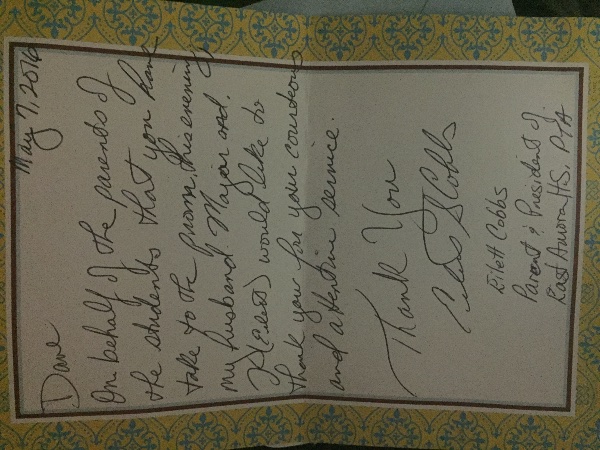 May 7, 2016
Dave
On behalf of the parents of
the students that you have
take to the prom, this evening,
my husband Major and.
I (Eilett) would like to
thank you for your courteous
and attentive service.
Thank You
Eilett S Cobbs
Eilett Cobbs
Parent & President of
East Aurora H.S. PTA